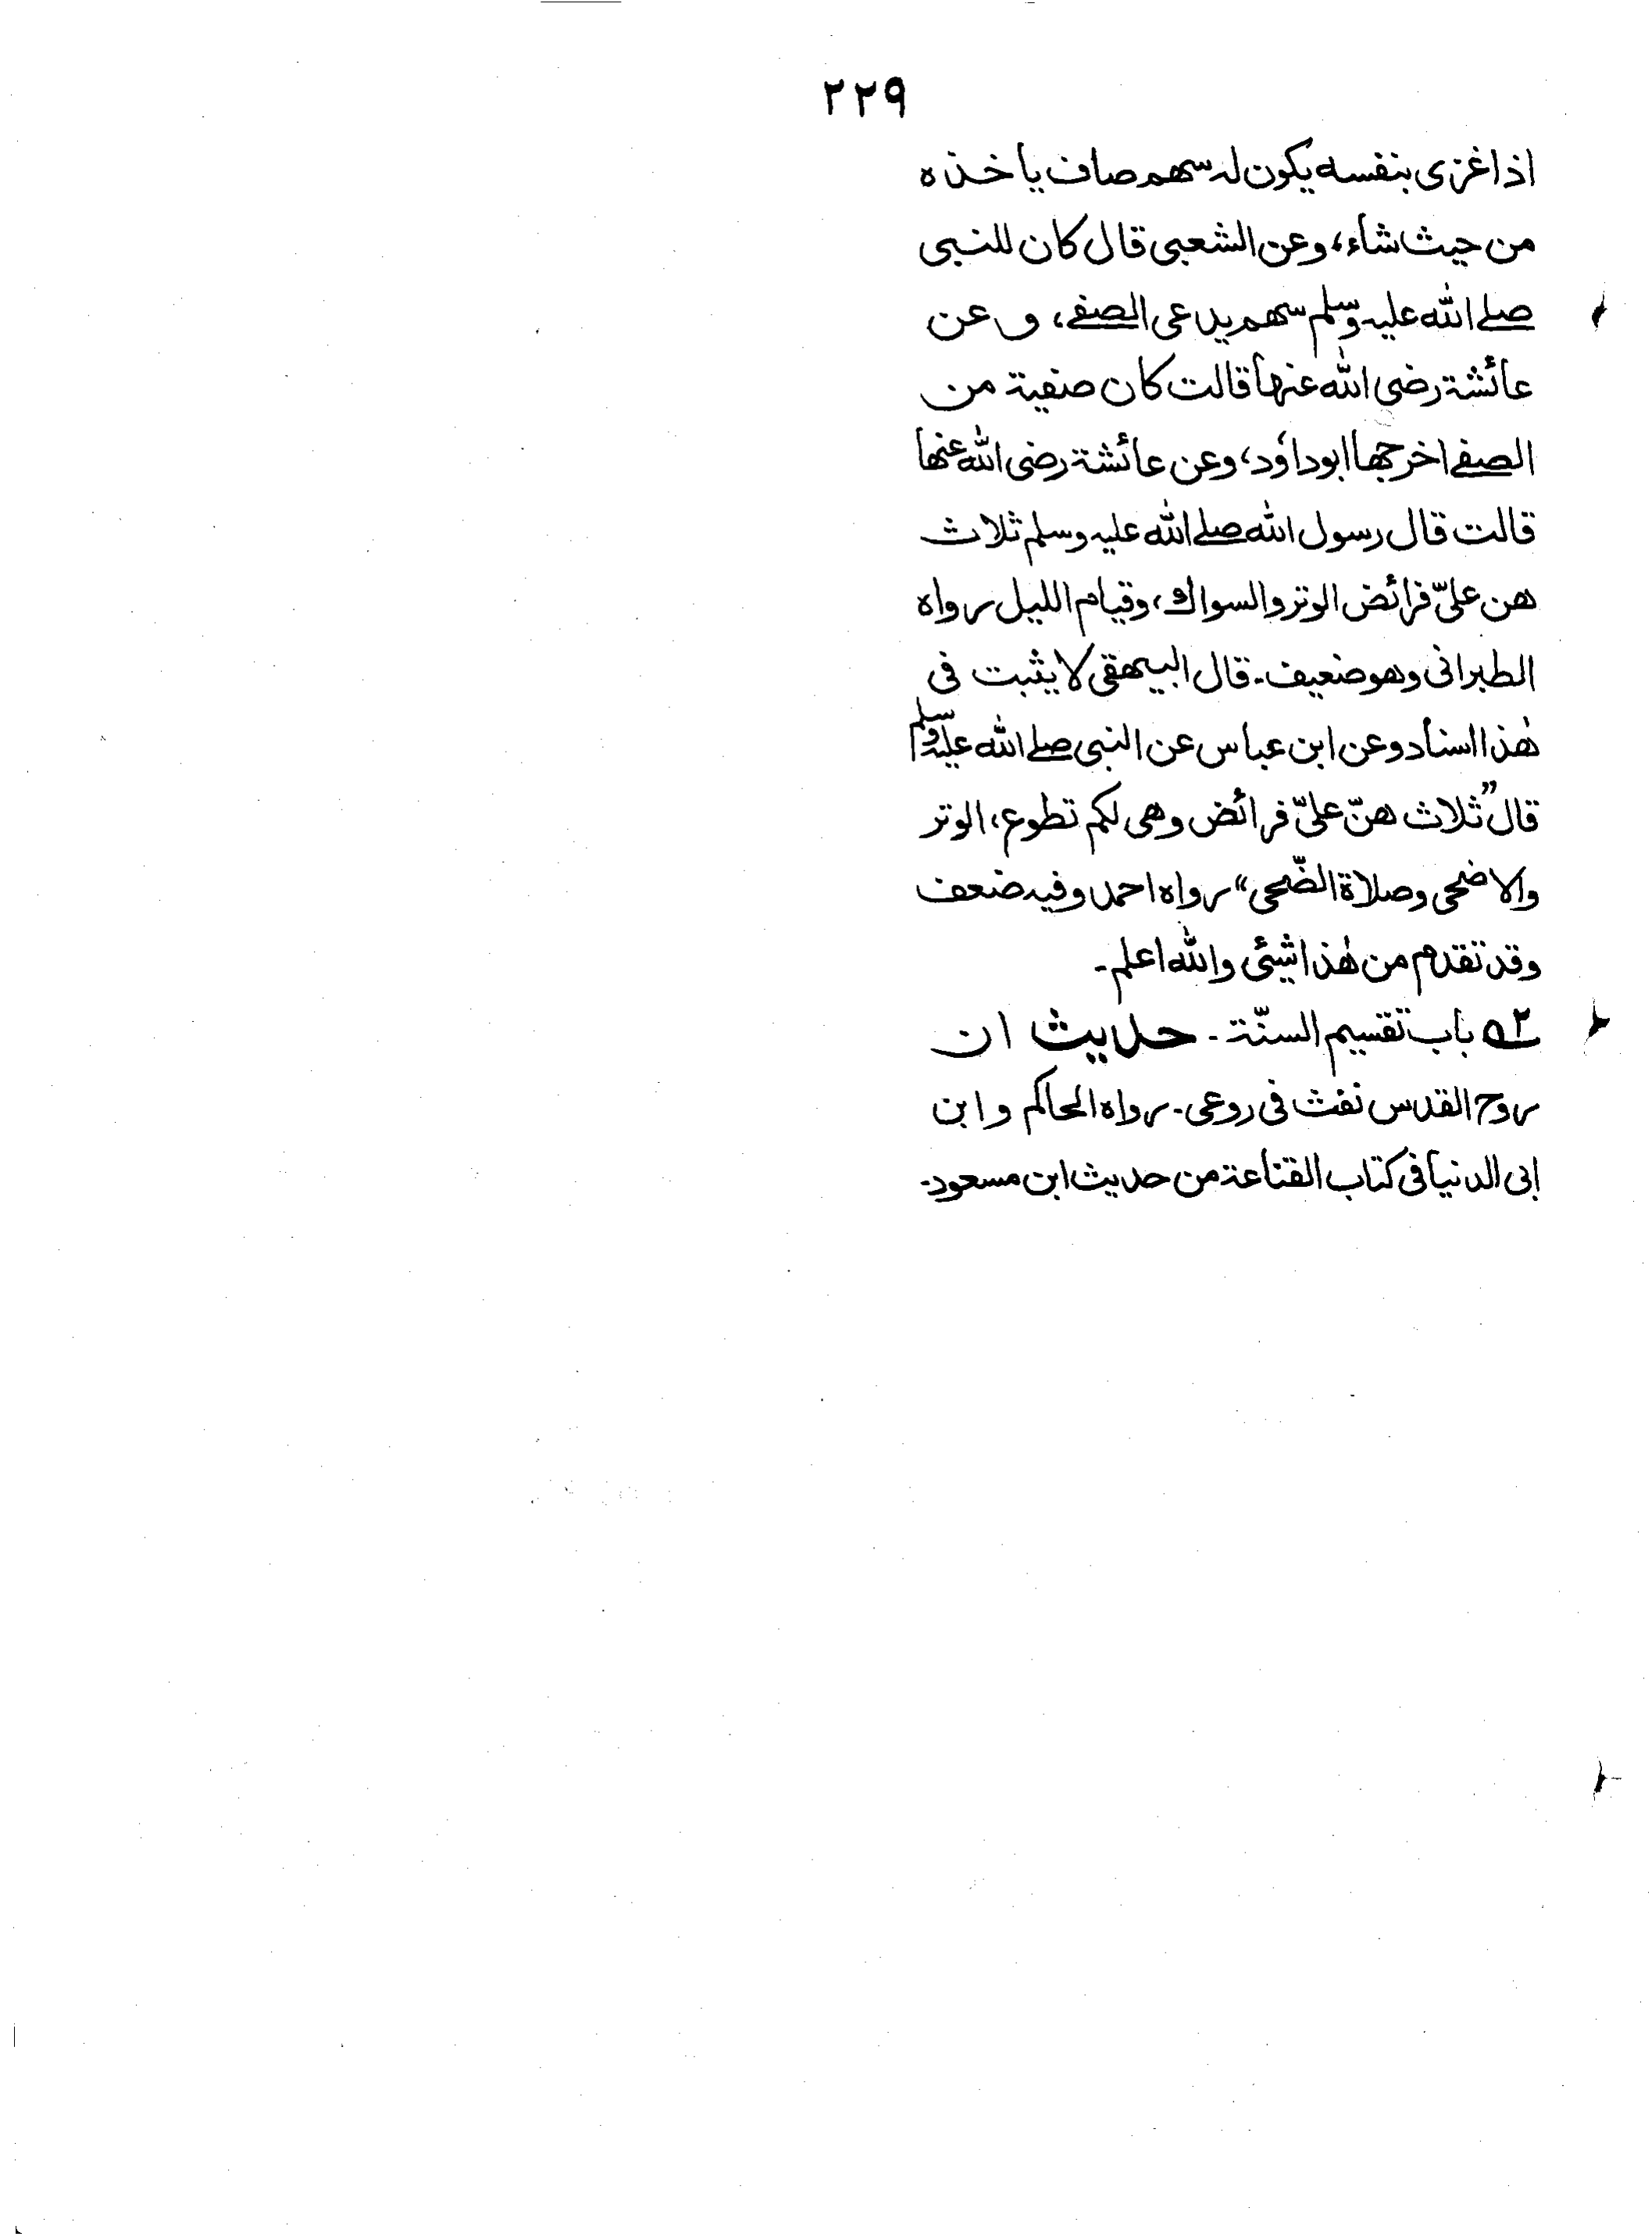 ٢٢٩
اذا غزى بنفسه يكون له سهم صاف يأخذه
من حيث شاء، وعن الشعبى قال كان للنبى
صلے الله عليه وسلم سهم يدعى الصفے، و عن
عائشة رضى الله عنها قالت كان صفية من
الصفے اخرجها ابوداؤد، وعن عائشة رضى الله عنها
قالت قال رسول الله صلے الله عليه وسلم ثلاث
هن علىّ فرائض الوتر والسواك، وقيام الليل رواه
الطبرانى وهو ضعيف۔ قال البيهقى لا يثبت فى
هٰذا اسناد وعن ابن عباس عن النبى صلے الله عليه وسلم
قال ”ثلاث هنّ علىّ فرائض وهى لكم تطوع، الوتر
والاضحى وصلاة الضّحى“ رواه احمد وفيه ضعف
وقد تقدم من هٰذا شيئى والله اعلم۔
٥٢ باب تقسيم السنّة۔ حديث ان
روح القدس نفث فى روعى۔ رواه الحاكم و ابن
ابى الدنيا فى كتاب القناعة من حديث ابن مسعود۔